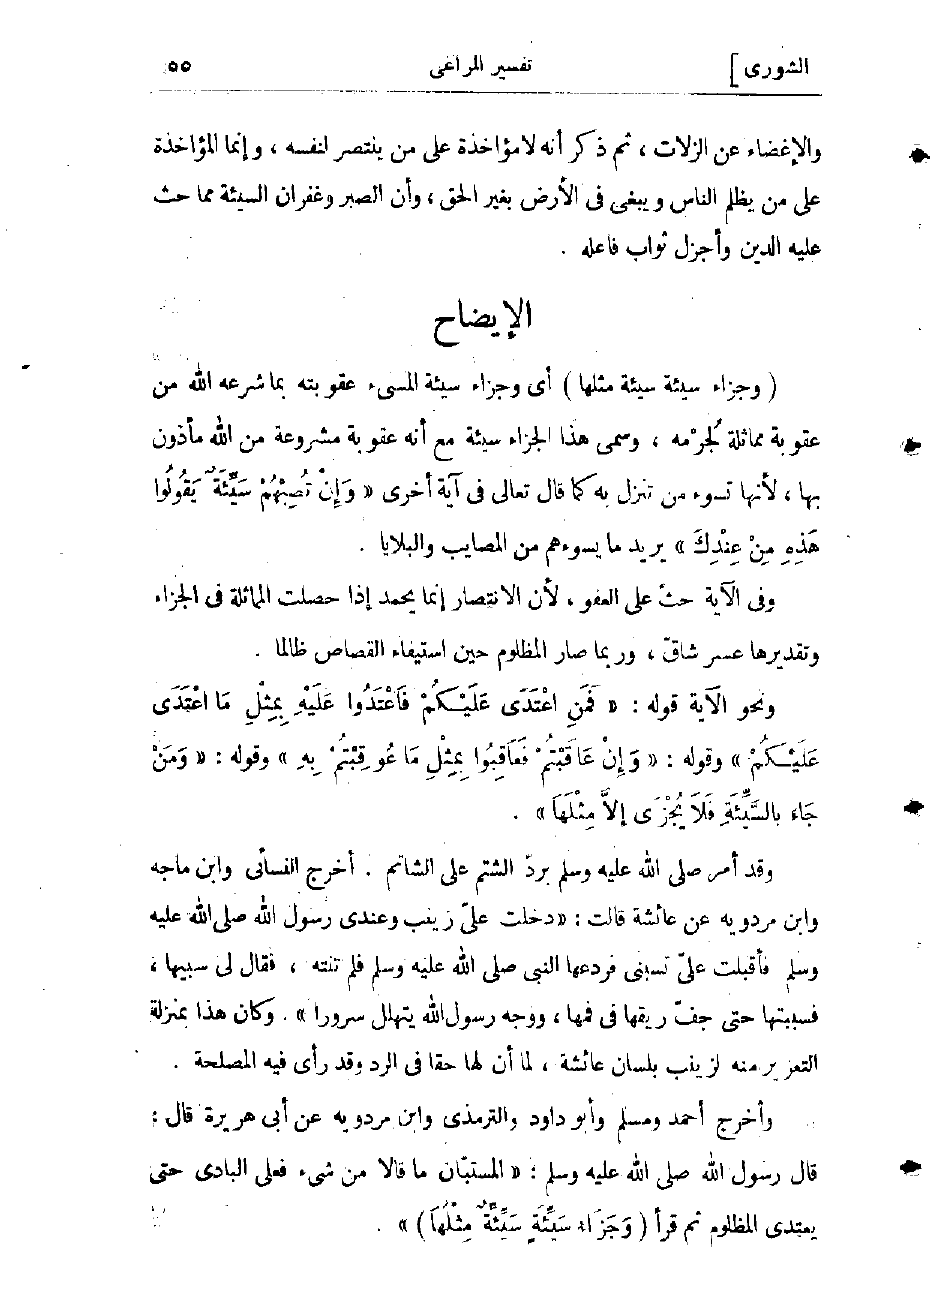 الشورى] تفسير المراغى ٥٥
والإغضاء عن الزلات ، ثم ذكر أنه لا مؤاخذة على من ينتصر لنفسه ، وإنما المؤاخذة
على من يظلم الناس ويبغى فى الأرض بغير الحق ، وأن الصبر وغفران السيئة مما حث
عليه الدين وأجزل ثواب فاعله .
الإيضاح
( وجزاء سيئة سيئة مثلها ) أى وجزاء سيئة المسىء عقوبته بما شرعه الله من
عقوبة مماثلة لُجرْمه ، وسمى هذا الجزاء سيئة مع أنه عقوبة مشروعة من الله مأذون
بها ، لأنها تسوء من تنزل به كما قال تعالى فى آية أخرى « وَإِنْ تُصِبْهُمْ سَيِّئَةٌ يَقُولُوا
هَذِهِ مِنْ عِنْدِكَ » يريد ما يسوءهم من المصايب والبلايا .
وفى الآية حثّ على العفو ، لأن الانتصار إنما يحمد إذا حصلت المماثلة فى الجزاء
وتقديرها عسر شاقّ ، وربما صار المظلوم حين استيفاء القصاص ظالما .
ونحو الآية قوله : « فَمَنِ اعْتَدَى عَلَيْكُمْ فَاعْتَدُوا عَلَيْهِ بِمِثْلِ مَا اعْتَدَى
عَلَيْكُمْ » وقوله : « وَإِنْ عَاقَبْتُمْ فَعَاقِبُوا بِمِثْلِ مَا عُوقِبْتُمْ بِهِ » وقوله : « وَمَنْ
جَاءَ بِالسَّيِّئَةِ فَلَا يُجْزَى إِلاَّ مِثْلَهَا » .
وقد أمر صلى الله عليه وسلم بردّ الشتم على الشاتم . أخرج النسائى وابن ماجه
وابن مردويه عن عائشة قالت : «دخلت علىّ زينب وعندى رسول الله صلى الله عليه
وسلم فأقبلت علىّ تسبنى فردعها النبى صلى الله عليه وسلم فلم تنته ، فقال لى سبيها ،
فسببتها حتى جفّ ريقها فى فمها ، ووجه رسول الله يتهلل سرورا » . وكان هذا بمنزلة
التعزير منه لزينب بلسان عائشة ، لما أن لها حقا فى الرد وقد رأى فيه المصلحة .
وأخرج أحمد ومسلم وأبو داود والترمذى وابن مردويه عن أبى هريرة قال :
قال رسول الله صلى الله عليه وسلم : « المستبّان ما قالا من شىء فعلى البادى حتى
يعتدى المظلوم ثم قرأ ( وَجَزَاءُ سَيِّئَةٍ سَيِّئَةٌ مِثْلُهَا ) » .